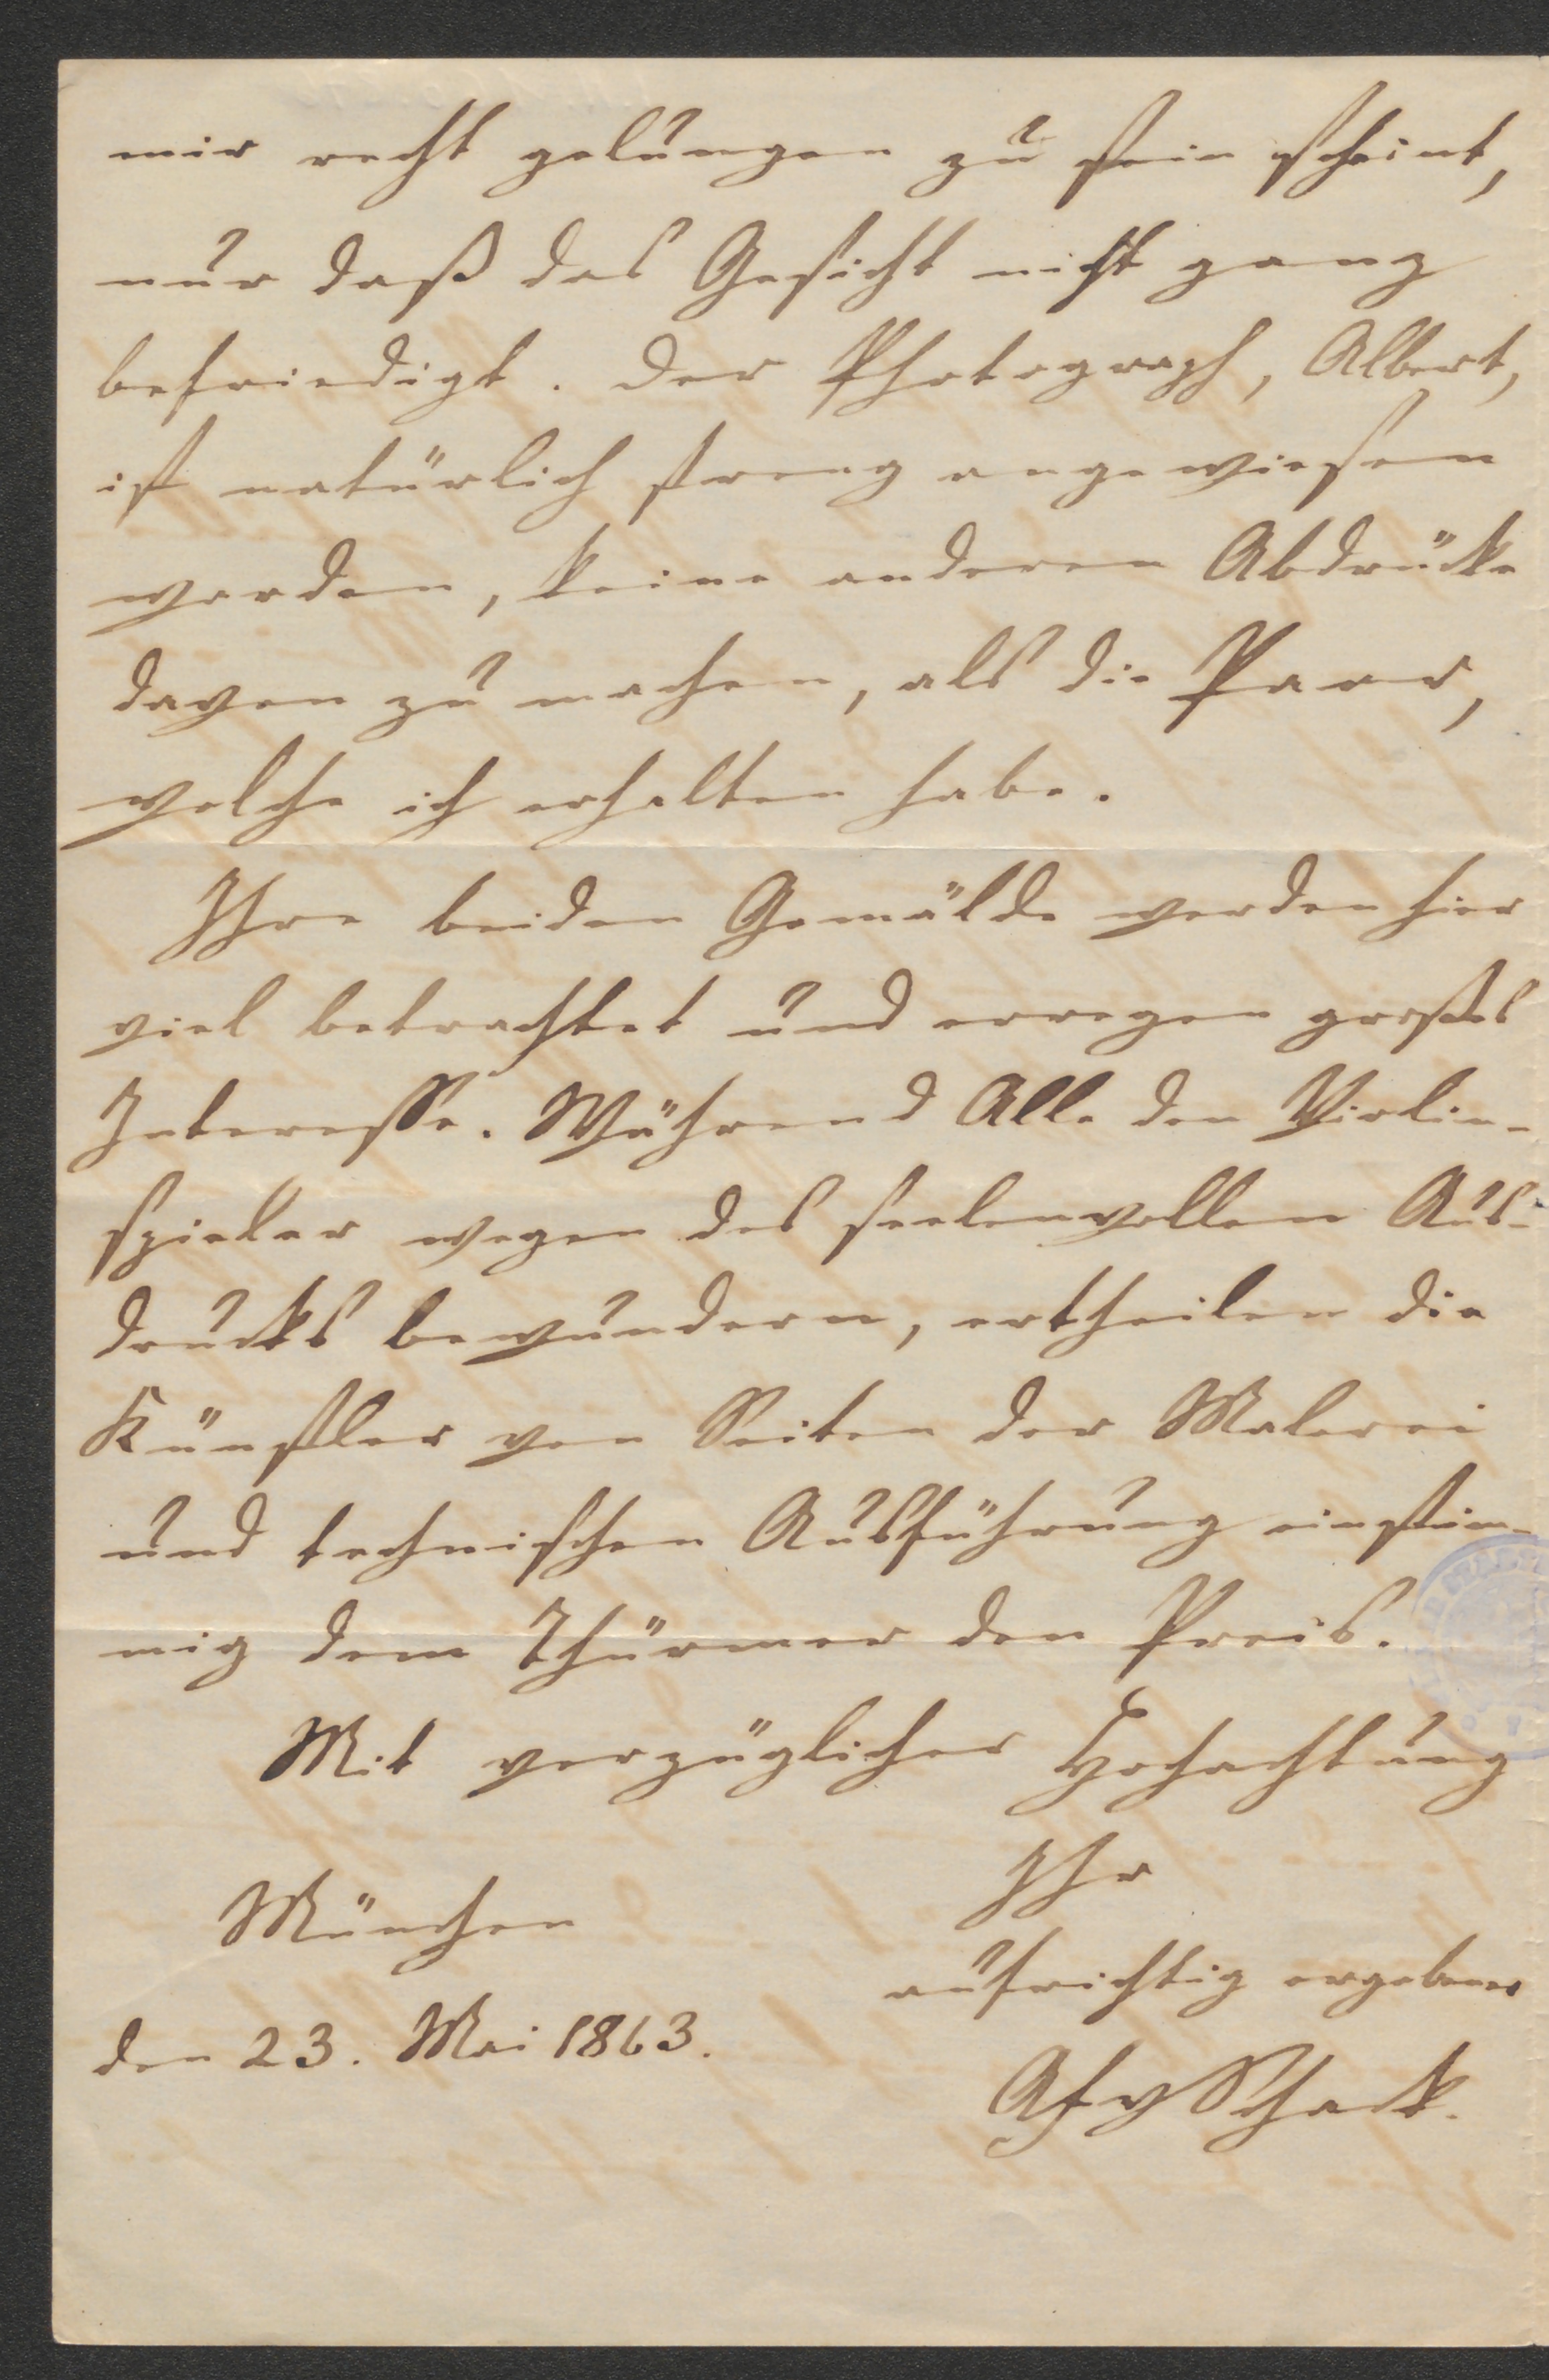 mir recht gelungen zu sein scheint,
nur daß das Gesicht nicht ganz
befriedigt. Der Photograph, Albert,
ist natürlich streng angewiesen
worden, keine anderen Abdrücke
davon zu machen, als die Paar,
welche ich erhalten habe.
Ihre beiden Gemälde werden hier
viel betrachtet und erregen großes
Interesse. Während Alle den Violin-
spieler wegen des seelenvollen Aus-
drucks bewundern, ertheilen die
Künstler von Seiten der Malerei
und technischen Ausführung einstim-
mig dem Thürmer den Preis.
Mit vorzüglicher Hochachtung
Ihr
München
aufrichtig ergebener
den 23. Mai 1863.
AfvSchack.